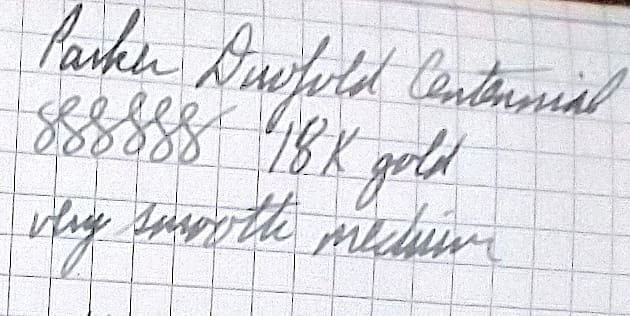 Parker Duofold Centennial
888888 18K gold
very smooth medium